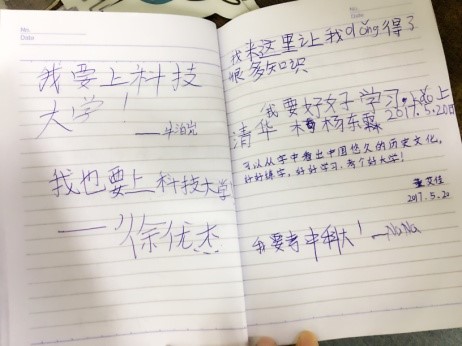 No.
Date
我要上科技
大学！
——牛泊岩
我也要上科技大学
——徐优杰
No.
Date
我来这里让我dǒng得了
很多知识
我要好好学习，kǎo上
清华 杨东霖 2017.5.20日
可以从字中看出中国悠久的历史文化。
好好练字，好好学习，考个好大学！
董艾佳
2017.5.20
我要考中科大！—NaNa